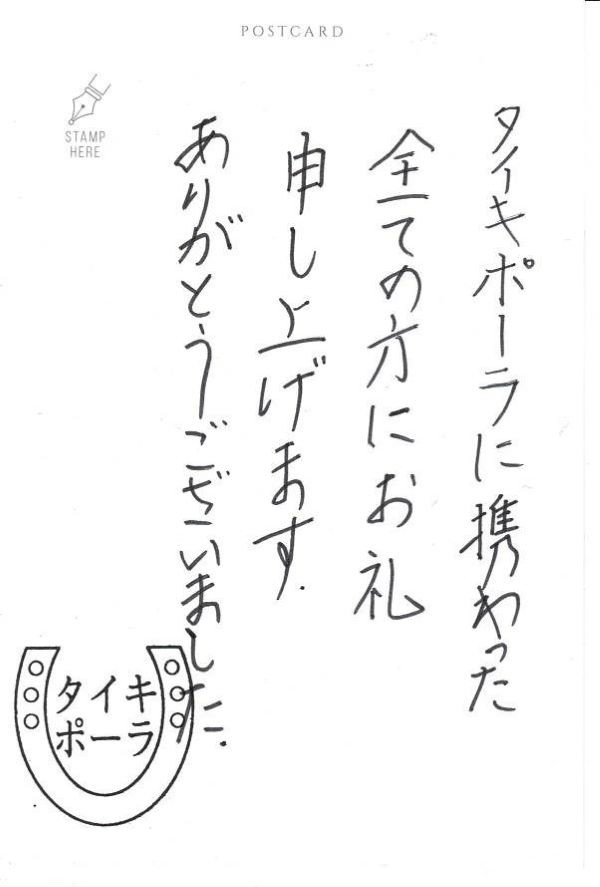 POSTCARD
STAMP
HERE
タイキポーラに携わった
全ての方にお礼
申し上げます.
ありがとうございました.
タイキ
ポーラ